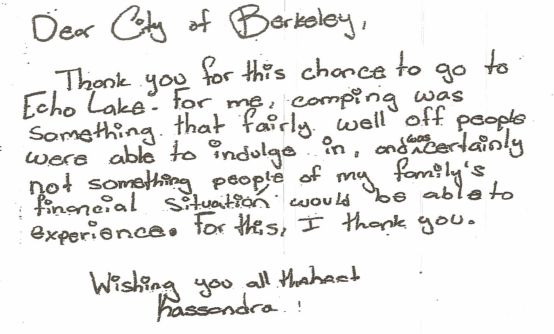 Dear City of Berkeley,
Thank you for this chance to go to
Echo Lake. For me, camping was
something that fairly well off people
were able to indulge in, and was certainly
not something people of my family's
financial situation would be able to
experience. For this, I thank you.
Wishing you all
Kassandra!